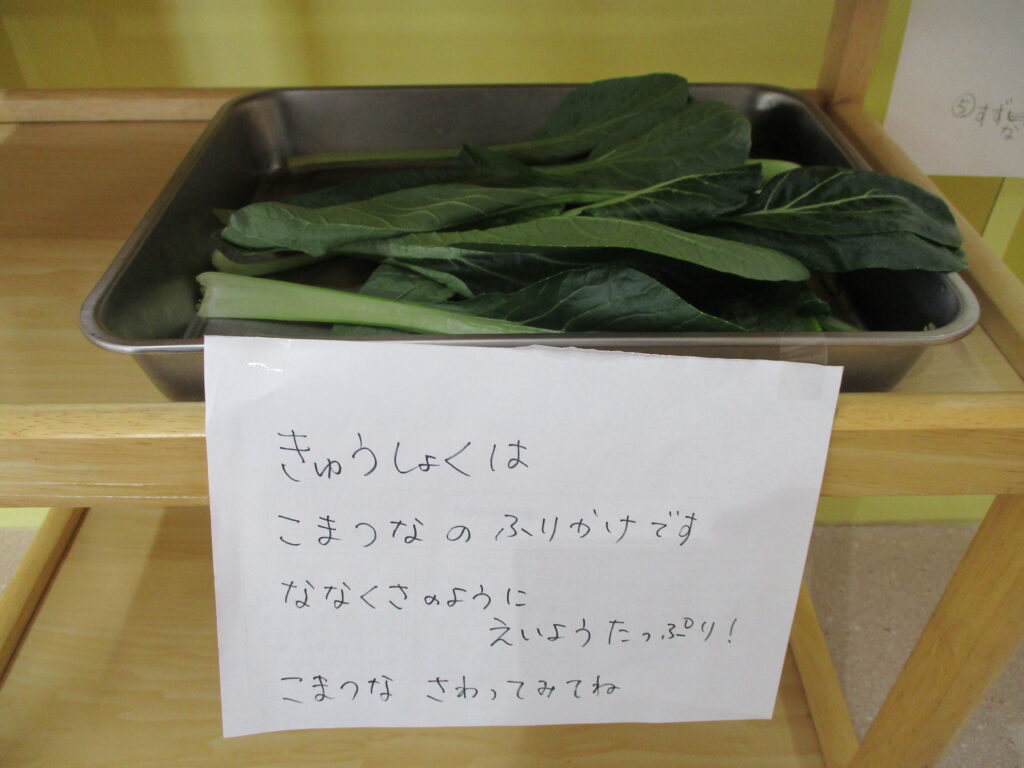 きゅうしょくは
こまつなのふりかけです
ななくさのように
えいようたっぷり!
こまつな さわってみてね
⑤すずな